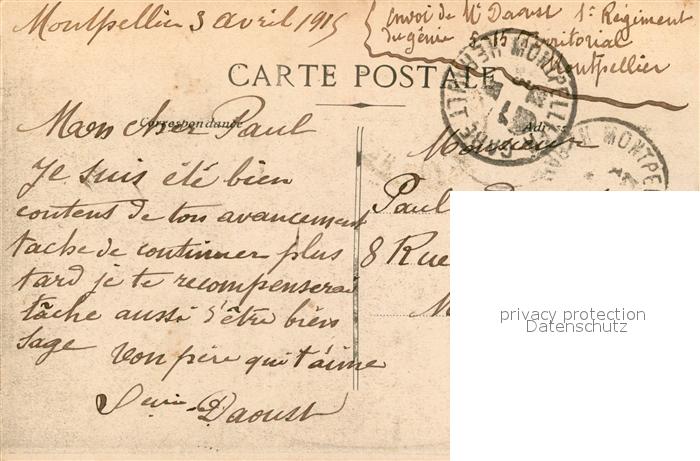 Montpellier 3 avril 1915
envoi de Mr Daoust 1r Régiment
du génie 5-15 territorial
Montpellier
CARTE POSTALE
Correspondance
Mon cher Paul
Je suis été bien
contens de ton avancement
tache de continuer plus
tard je te recompenserai
tâche aussi d'être bien
sage ton père qui t'aime
Daoust
Monsieur
Paul
8 Rue
privacy protection
Datenschutz
MONTPELLIER
GARE
HERAULT
MONTPE